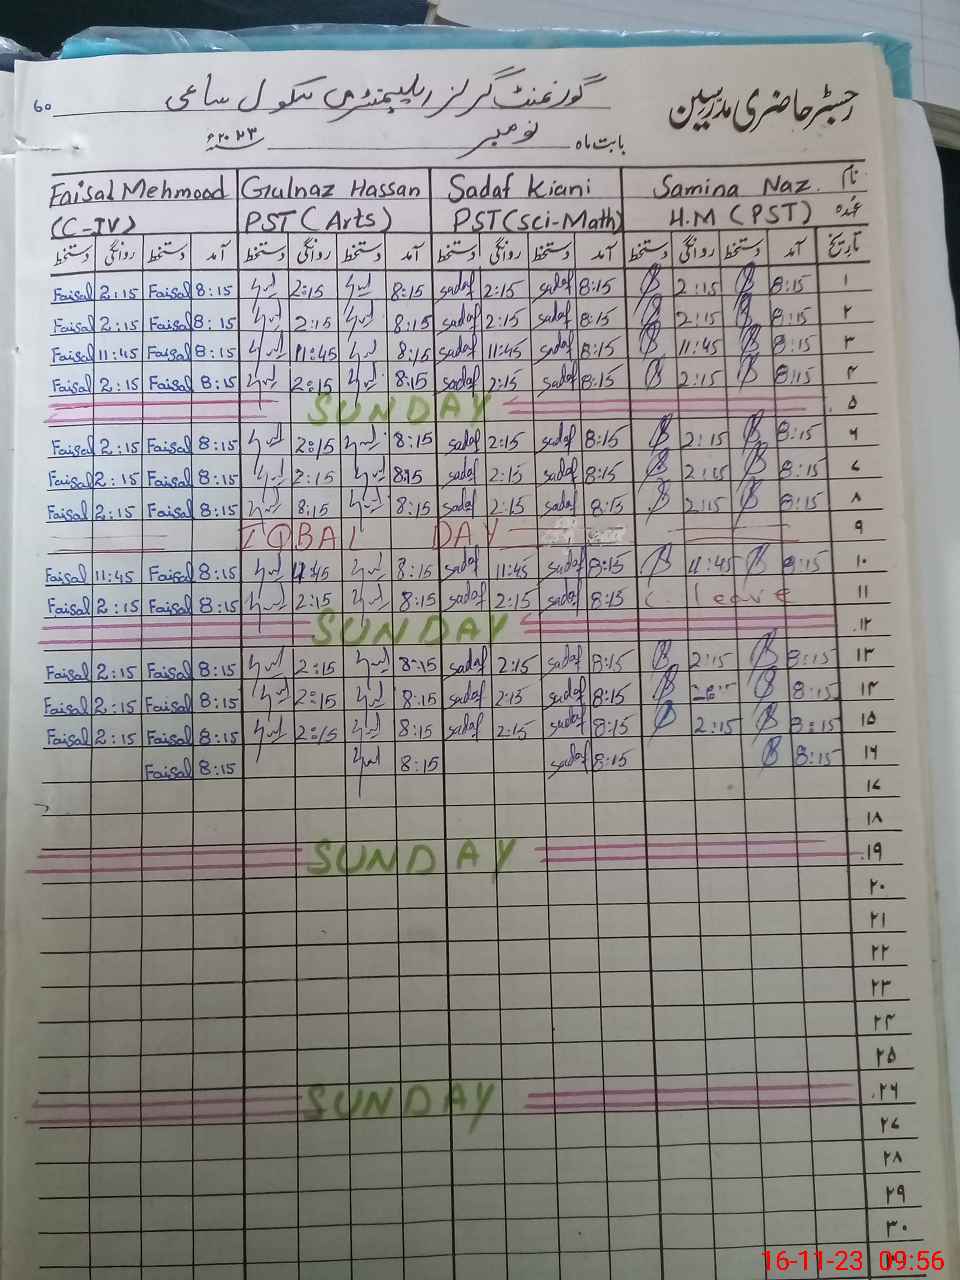 رجسٹر حاضری مدرسین گورنمنٹ گرلز ایلیمنٹری سکول ساعی ۶۰
بابت ماہ نومبر ۲۰۲۳ء
نام Samina Naz. Sadaf Kiani Gulnaz Hassan Faisal Mehmood
عہدہ H.M (PST) PST (Sci-Math) PST (Arts) (C-IV)
تاریخ آمد دستخط روانگی دستخط آمد دستخط روانگی دستخط آمد دستخط روانگی دستخط آمد دستخط روانگی دستخط
۱ 8:15 2:15 8:15 sadaf 2:15 sadaf 8:15 2:15 8:15 Faisal 2:15 Faisal
۲ 8:15 2:15 8:15 sadaf 2:15 sadaf 8:15 2:15 8:15 Faisal 2:15 Faisal
۳ 8:15 11:45 8:15 sadaf 11:45 sadaf 8:15 11:45 8:15 Faisal 11:45 Faisal
۴ 8:15 2:15 8:15 sadaf 2:15 sadaf 8:15 2:15 8:15 Faisal 2:15 Faisal
۵ SUNDAY
۶ 8:15 2:15 8:15 sadaf 2:15 sadaf 8:15 2:15 8:15 Faisal 2:15 Faisal
۷ 8:15 2:15 8:15 sadaf 2:15 sadaf 8:15 2:15 8:15 Faisal 2:15 Faisal
۸ 8:15 2:15 8:15 sadaf 2:15 sadaf 8:15 8:15 8:15 Faisal 2:15 Faisal
۹ IQBAL DAY
۱۰ 8:15 11:45 8:15 sadaf 11:45 sadaf 8:15 11:45 8:15 Faisal 11:45 Faisal
۱۱ C. leave 8:15 sadaf 2:15 sadaf 8:15 2:15 8:15 Faisal 2:15 Faisal
۱۲ SUNDAY
۱۳ 8:15 2:15 8:15 sadaf 2:15 sadaf 8:15 2:15 8:15 Faisal 2:15 Faisal
۱۴ 8:15 8:15 sadaf 2:15 sadaf 8:15 2:15 8:15 Faisal 2:15 Faisal
۱۵ 8:15 2:15 8:15 sadaf 2:15 sadaf 8:15 2:15 8:15 Faisal 2:15 Faisal
۱۶ 8:15 8:15 sadaf 8:15 8:15 Faisal
۱۷
۱۸
۱۹ SUNDAY
۲۰
۲۱
۲۲
۲۳
۲۴
۲۵
۲۶ SUNDAY
۲۷
۲۸
۲۹
۳۰
16-11-23 09:56